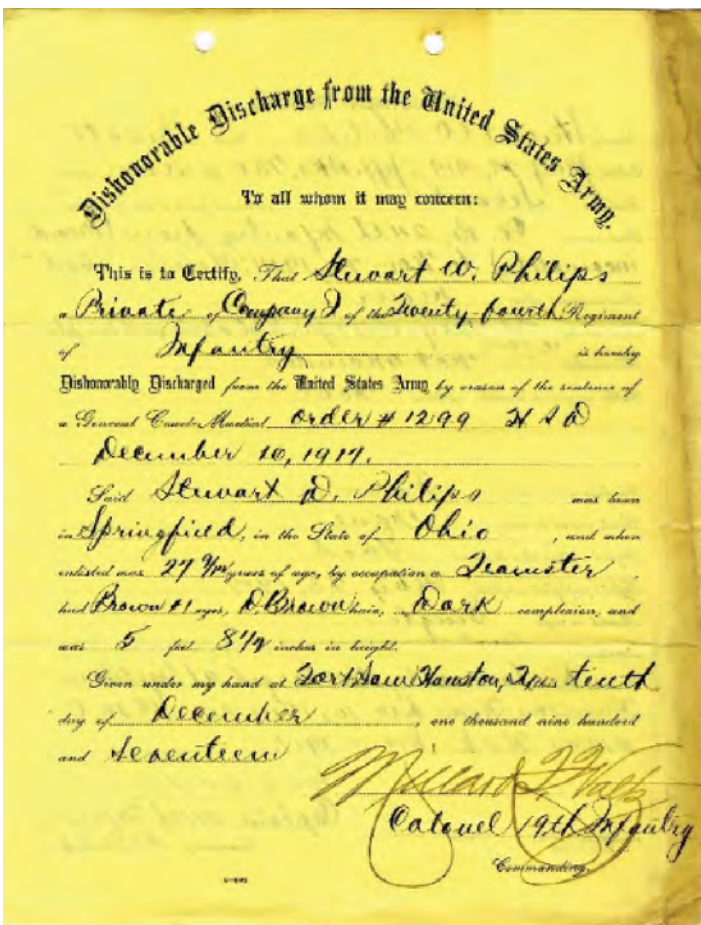 Dishonorable Discharge from the United States Army.
To all whom it may concern:
This is to Certify, That Stewart W. Philips
a Private of Company I of the Twenty-fourth Regiment
of Infantry is hereby
Dishonorably Discharged from the United States Army by reason of the sentence of
a General Court-Martial order # 1299 H S D
December 10, 1917.
Said Stewart D. Philips was born
in Springfield, in the State of Ohio, and when
enlisted was 27 years of age, by occupation a Teamster,
had Brown #1 eyes, D. Brown hair, Dark complexion, and
was 5 feet 8 1/4 inches in height.
Given under my hand at Fort Sam Houston, this tenth
day of December, one thousand nine hundred
and seventeen
Millard F. Waltz
Colonel 19th Infantry
Commanding.